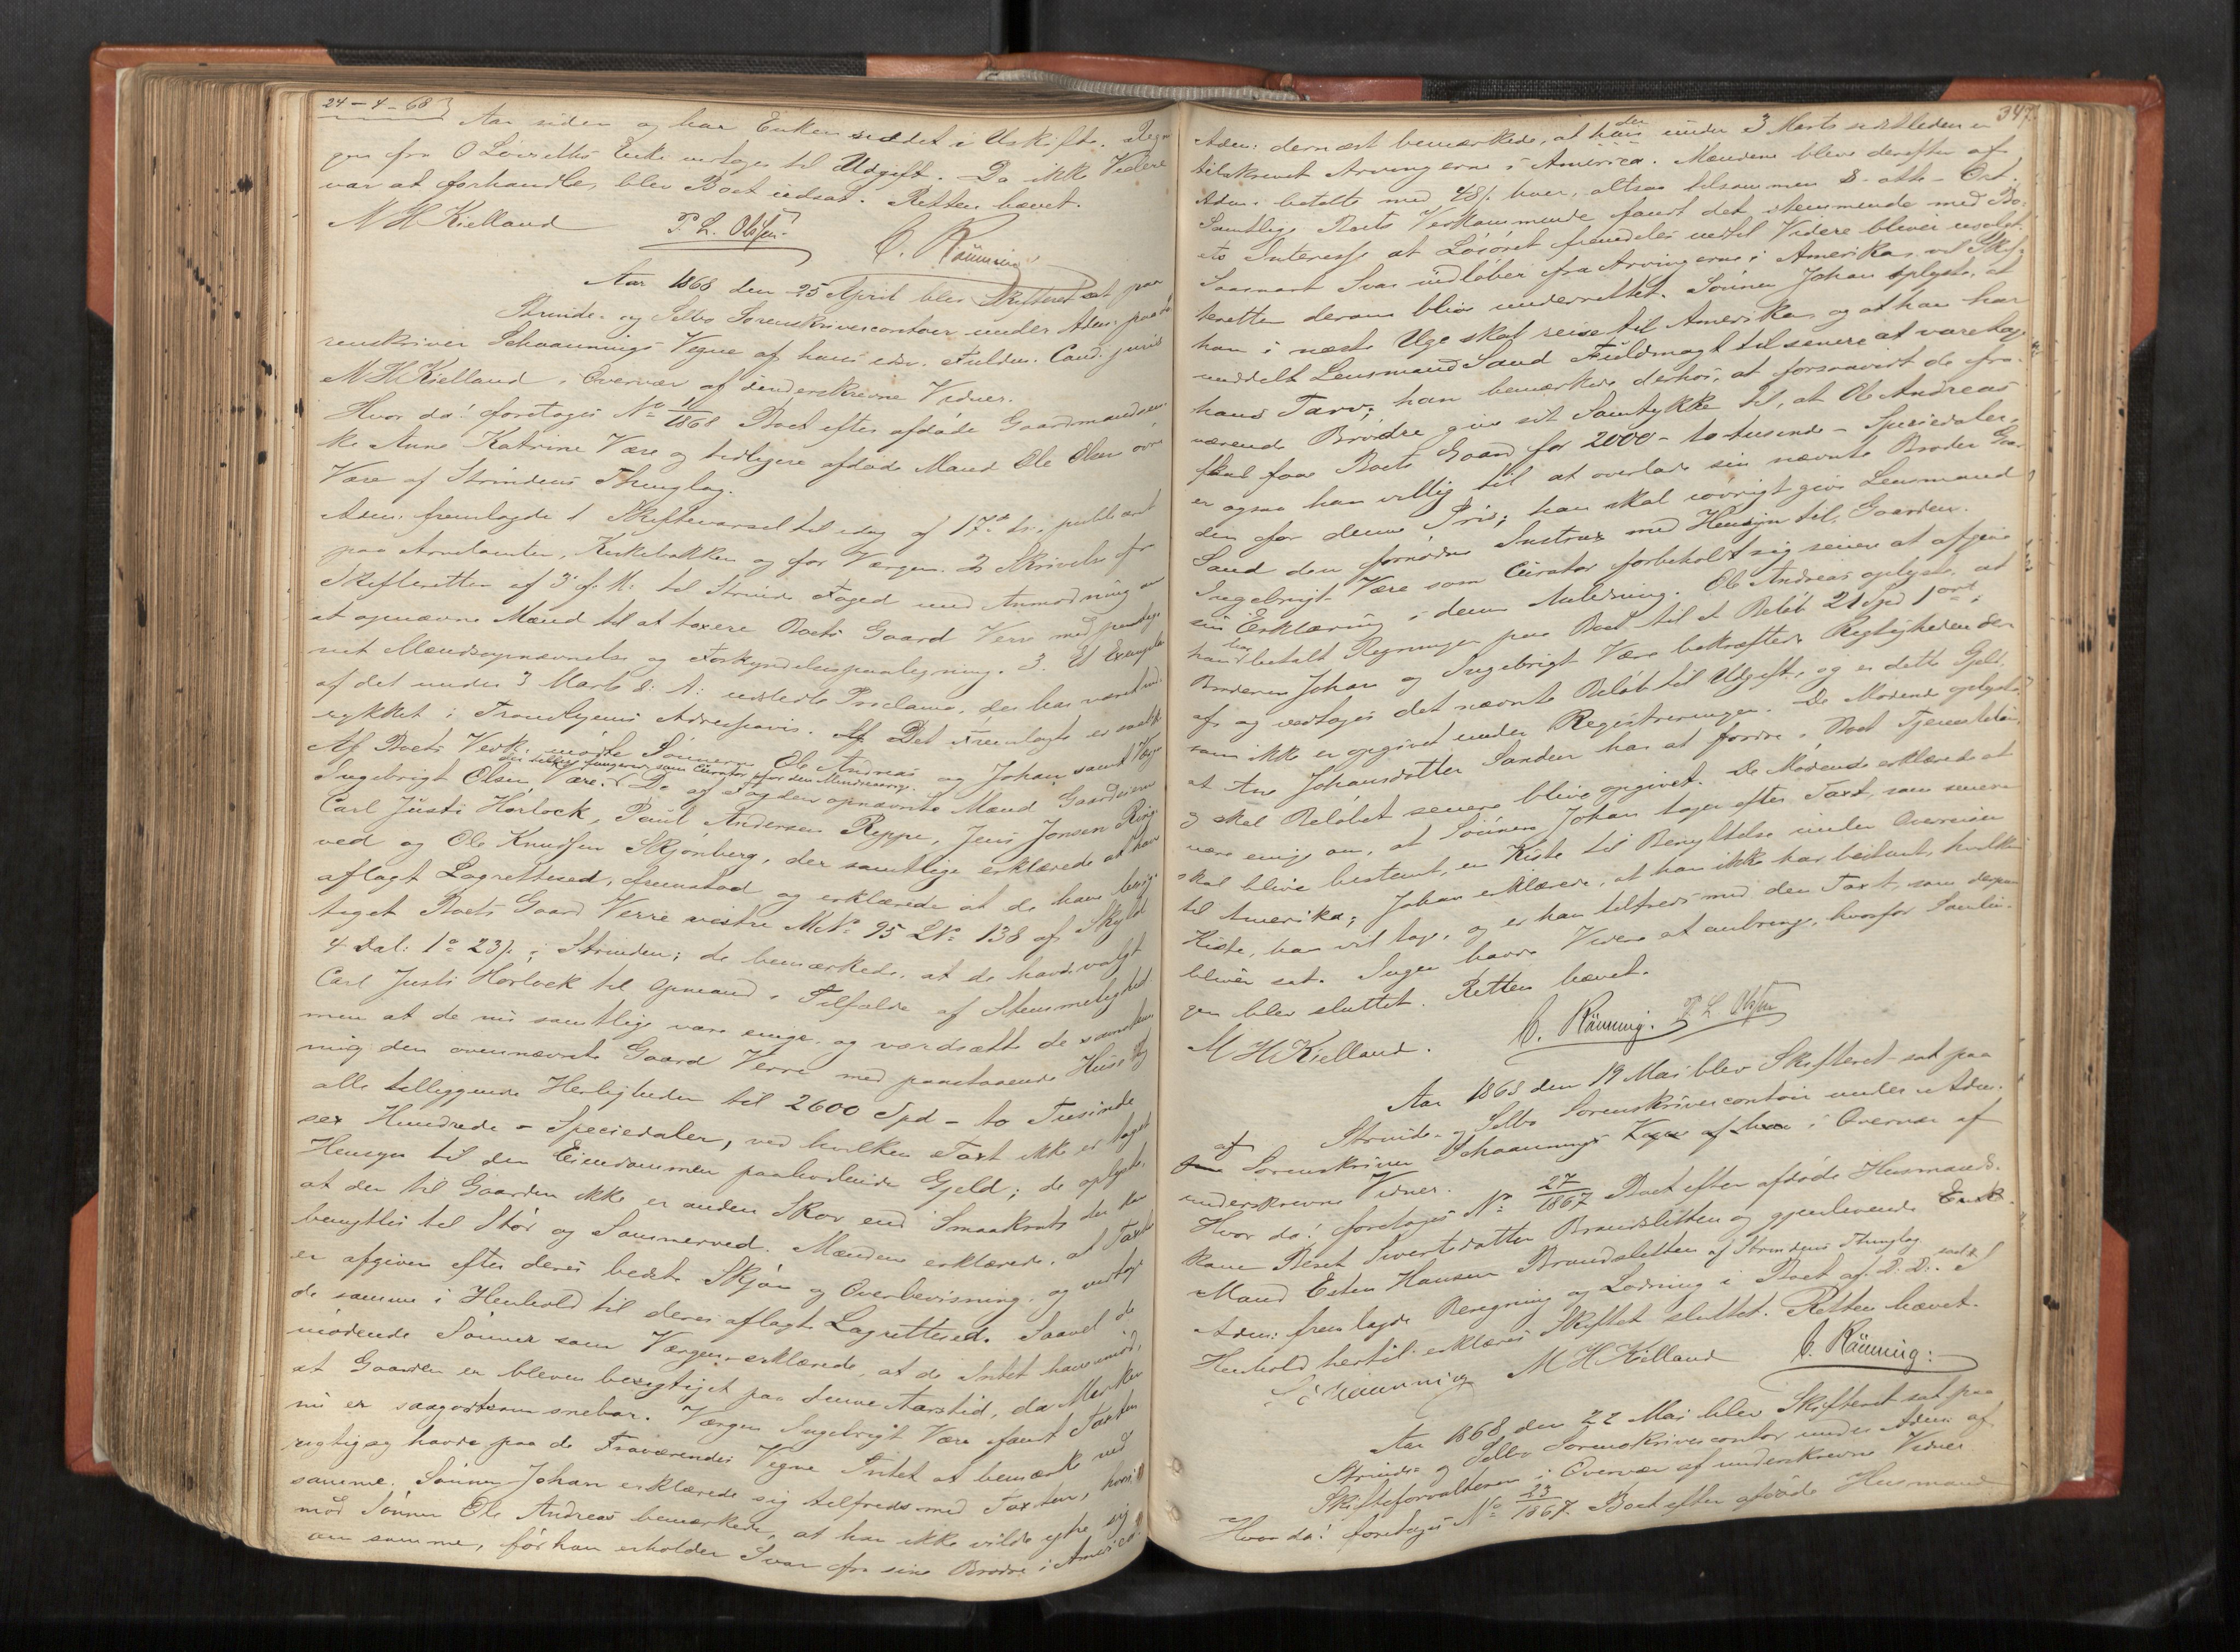 24-4-68
Aar siden og har Enken siddet i Uskifte. Regnin
gen fra O Lóvetths Enke vedtages til Udgift. Da ikke Videre
var at forhandle, blev Boet udsat. Retten hævet.
N H Kielland P. L. Olsen C. Rånning
Aar 1868 den 25 April blev Skifteret sat paa
Strinde- og Selbo Sorenskrivercontoir under Adm. paa So
renskriver Schaannings Vegne af hans edsv. Fuldm. Cand. juris
N H Kielland i Overvær af underskrevne Vidner.
Hvor da! foretages No 1/1868 Boet efter afdøde Gaardmandsen
ke Anne Katrine Være og tidligere afdøde Mand Ole Olsen øvre
Være af Strindens Thinglag.
Adm. fremlagde 1 Skiftevarsel til idag af 17de ds. publiceret
paa Arnestuen, Kirkebakken og for Værgen. 2 Skrivelse fra
Skifteretten af 3 f. M. til Strinde Foged med Anmodning om
at opnævne Mænd til at taxere Boets Gaard Verre med paateg
net Mændsopnævnelse og Forkyndelsespaategning. 3. Et Exemplar
af det under 3 Marts d. A. udstedte Proclama, der har været ind
rykket i Trondhjems Adresseavis. Det Fremlagte er saalt.
Af Boets Vedk. mødte Sønnerne Ole Andreas og Johan samt Værgen
der tillige fungerer som Curator for den Mindreaarige.
Ingebrigt Olsen Være. De af Fogden opnævnte Mænd Gaardmænd
Carl Justi Horlock, Paul Andersen Reppe, Jens Jonsen Ring
ved og Ole Knudsen Skjønberg, der samtlige erklærede at have
aflagt Lagretteed, fremstod og erklærede at de have besig
tiget Boets Gaard Verre vestre MNo 95 LNo 138 af Skyld
4 Dal: 1o 23ß i Strinden; de bemærkede, at de havde valgt
Carl Justi Horlock til Opmand i Tilfælde af Stemmelighed
men at de nu samtlige vare enige, og værdsatte de
den ovennævnte Gaard Verre med paastaaende Huse og
alle tilliggende Herligheder til 2600 Spd - to Tusinde
sex Hundrede - Speciedaler, ved hvilken Taxt ikke er taget
Hensyn til den Eiendommen paahvilende Gjeld; de oplyste,
at der til Gaarden ikke er anden Skov end Smaakrat der kan
benyttes til Stør og Sommerved. Mændene erklærede, at Taxten
er afgiven efter deres bedste Skjøn og Overbevisning, og vedtoge
de samme i Henhold til deres aflagte Lagretteed. Saavel de
mødende Sønner som Værgen erklærede, at de Intet have imod,
at Gaarden er bleven besigtiget paa denne Aarstid, da Marken
nu er saagodtsom snebar. Værgen Ingebrigt Være fandt Taxten
rigtig og havde paa de Fraværendes Vegne Intet at bemærke ved
samme. Sønnen Johan erklærede sig tilfreds med Taxten, hvori
mod Sønnen Ole Andreas bemærkede, at han ikke vilde ytre sig
om samme, før han erholder Svar fra sine Brødre i Amerika.
347.
Adm. dernæst bemærkede, at der under 3 Marts sidstleden er
tilskrevet Arvingerne i America. Mændene bleve derefter af
Adm. betalte med 48ß hver, altsaa tilsammen 8 - otte - Ort.
Samtlige Boets Vedkommende fandt det stemmende med Bo
ets Interesse at Løsøret fremdeles indtil Videre bliver usolgt.
Saasnart Svar indløber fra Arvingerne i Amerika vil Skif
teretten derom blive underrettet. Sønnen Johan oplyste, at
han i næste Uge skal reise til Amerika, og at han har
meddelt Lensmand Sand Fuldmagt til senere at varetage
hans Tarv; han bemærkede derhos, at forsaavidt de fra
værende Brødre give sit Samtykke til, at Ole Andreas
skal faa Boets Gaard for 2000 - to tusinde - Speciedaler,
er ogsaa han villig til at overlade sin nævnte Broder Gaar
den for denne Pris; han skal iøvrigt give Lensmand
Sand den fornødne Instrux med Hensyn til Gaarden.
Ingebrigt Være som Curator forbeholdt sig senere at afgive
sin Erklæring i denne Anledning. Ole Andreas oplyste, at
han har betalt Regninger paa Boet til et Beløb 21 Spd 1 ort;
Broderen Johan og Ingebrigt Være bekræftede Rigtigheden der
af, og vedtoges det nævnte Beløb til Udgift, og er dette Gjeld,
som ikke er opgivet under Registreringen. De Mødende oplyste,
at Ane Johansdatter Sanden har at fordre i Boet Tjenesteløn,
og skal Beløbet senere blive opgivet. De Mødende erklærede at
være enige om, at Sønnen Johan tager efter Taxt, som senere
skal blive bestemt, en Kiste til Benyttelse under Overreisen
til Amerika; Johan erklærede, at han ikke har bestemt, hvilken
Kiste, han vil tage, og er han tilfreds med den Taxt, som derpaa
bliver sat. Ingen havde Videre at anbringe, hvorfor Samlin
gen blev sluttet. Retten hævet.
N H Kielland. C. Rånning. P. L. Olsen
Aar 1868 den 19 Mai blev Skifteret sat paa
Strinde- og Selbo Sorenskrivercontoir under Adm.
af Sorenskriver Schaanning i Overvær af
underskrevne Vidner.
Hvor da! foretages No 27/1867 Boet efter afdøde Husmands
kone Beret Sivertsdatter Brandsletten og gjenlevende Enke
Mand Esten Hansen Brandsletten af Strindens Thinglag.
Adm. fremlagde Beregning og Lodning i Boet af D. D. saalt. I
Henhold hertil erklæres Skiftet sluttet. Retten hævet.
Schaanning N H Kielland C. Rånning.
Aar 1868 den 22 Mai blev Skifteret sat paa
Strinde- og Selbo Sorenskrivercontor under Adm. af
Skifteforvalteren i Overvær af underskrevne Vidner
Hvor da! foretages No 23/1867. Boet efter afdøde Husmand